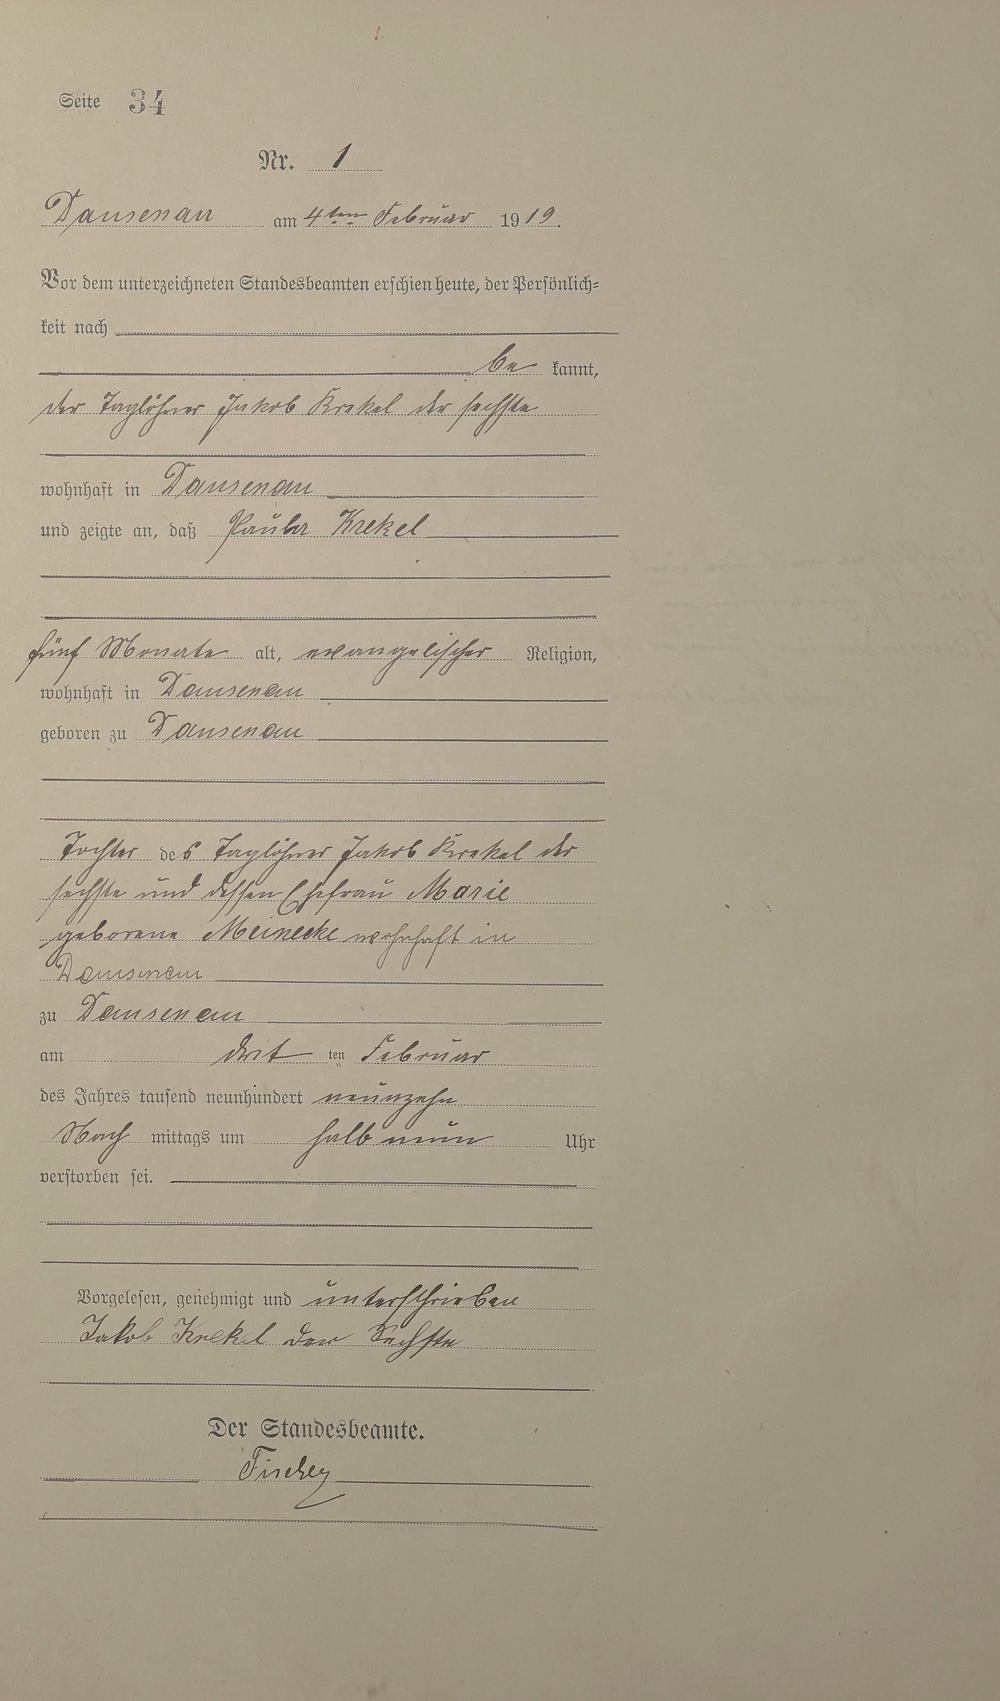 Seite 34
Nr. 1
Dausenau am 4ten Februar 1919.
Vor dem unterzeichneten Standesbeamten erschien heute, der Persönlich-
keit nach
be kannt,
der Taglöhner Jakob Krekel der sechste
wohnhaft in Dausenau
und zeigte an, daß Paula Krekel
fünf Monate alt, evangelischer Religion,
wohnhaft in Dausenau
geboren zu Dausenau
Tochter des Taglöhner Jakob Krekel der
sechste und dessen Ehefrau Marie
geborene Meinecke wohnhaft in
Dausenau
zu Dausenau
am drit ten Februar
des Jahres tausend neunhundert neunzehn
Nach mittags um halb neun Uhr
verstorben sei.
Vorgelesen, genehmigt und unterschrieben
Jakob Krekel der Sechste
Der Standesbeamte.